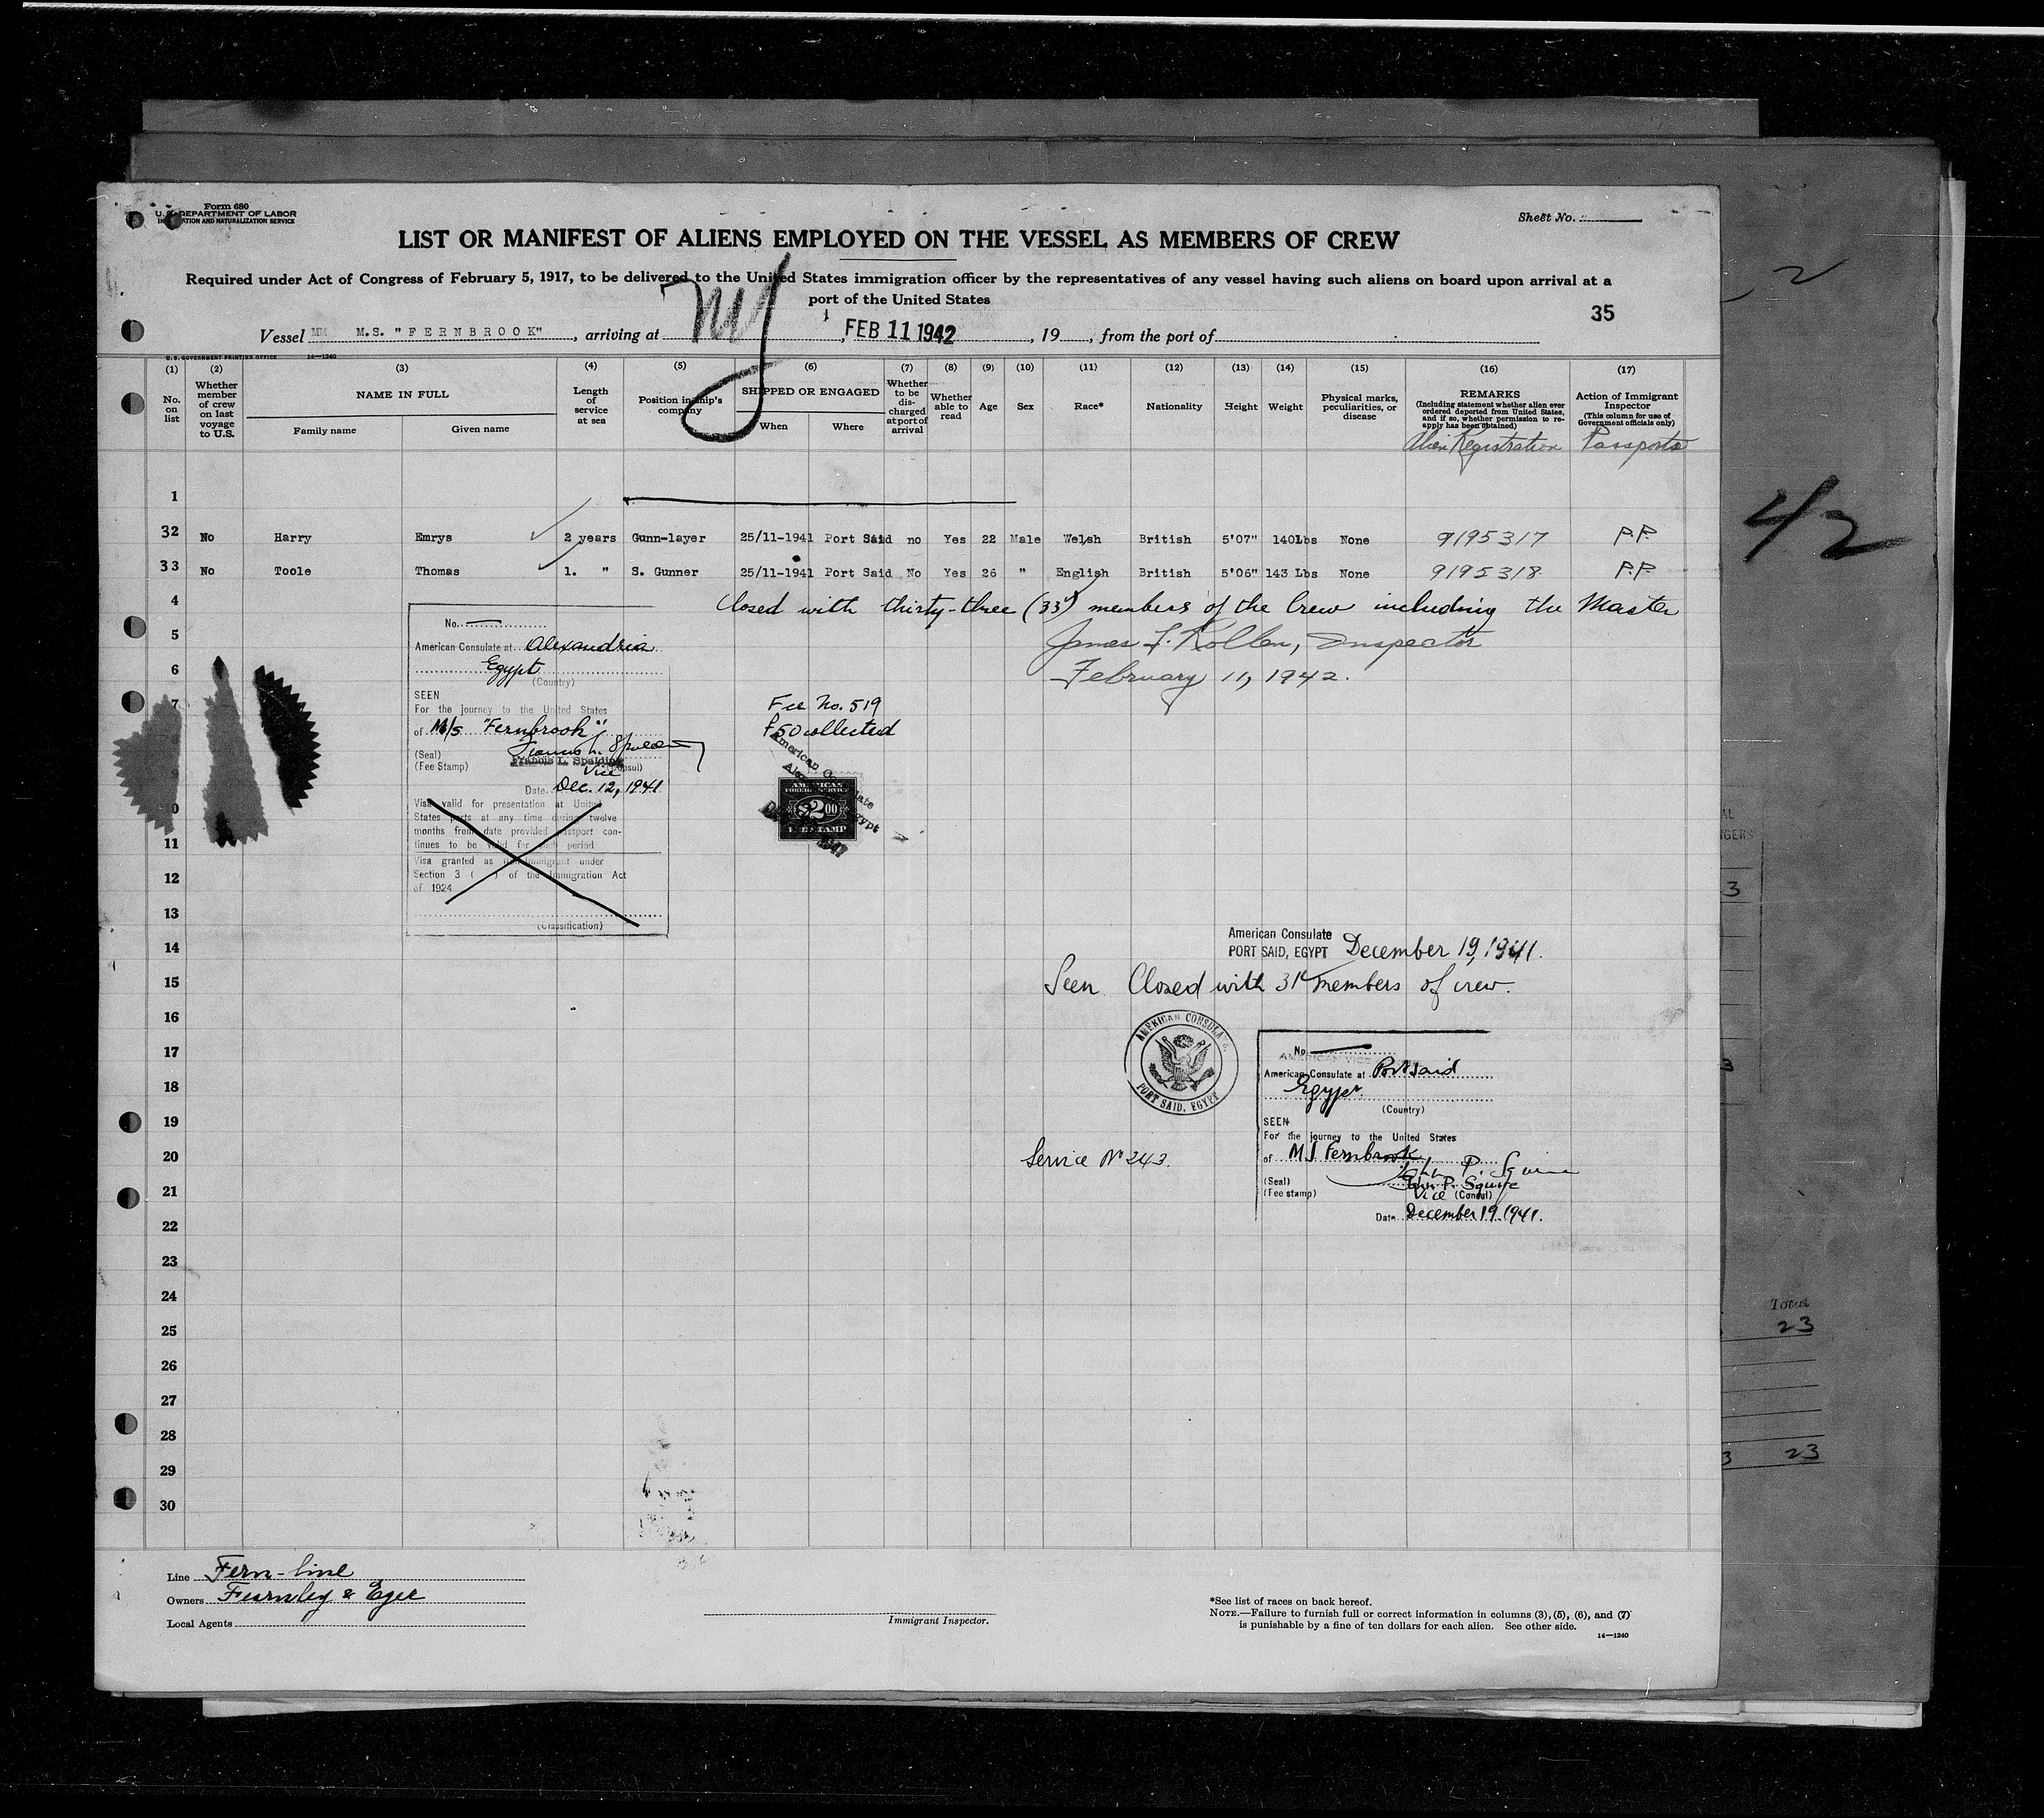 Form 680
U.S. DEPARTMENT OF LABOR
IMMIGRATION AND NATURALIZATION SERVICE
Sheet No.
LIST OR MANIFEST OF ALIENS EMPLOYED ON THE VESSEL AS MEMBERS OF CREW
Required under Act of Congress of February 5, 1917, to be delivered to the United States immigration officer by the representatives of any vessel having such aliens on board upon arrival at a
port of the United States
35
Vessel M.S. "FERNBROOK", arriving at NY, FEB 11 1942, 19 , from the port of
U.S. GOVERNMENT PRINTING OFFICE 14—1240
(1) (2) (3) (4) (5) (6) (7) (8) (9) (10) (11) (12) (13) (14) (15) (16) (17)
No. on list
Whether member of crew on last voyage to U.S.
NAME IN FULL
Family name
Given name
Length of service at sea
Position in ship's company
SHIPPED OR ENGAGED
When
Where
Whether to be discharged at port of arrival
Whether able to read
Age
Sex
Race*
Nationality
Height
Weight
Physical marks, peculiarities, or disease
REMARKS
(Including statement whether alien ever ordered deported from United States, and if so, whether permission to reapply has been obtained)
Alien Registration
Action of Immigrant Inspector
(This column for use of Government officials only)
Passports
1
32 No Harry Emrys 2 years Gunn-layer 25/11-1941 Port Said no Yes 22 Male Welsh British 5'07" 140Lbs None 9195317 P.P.
33 No Toole Thomas 1. " S. Gunner 25/11-1941 Port Said No Yes 26 " English British 5'06" 143 Lbs None 9195318 P.P.
4 Closed with thirty-three (33) members of the Crew including the Master
5 Inspector
6 February 11, 1942.
No.
American Consulate at Alexandria
Egypt
(Country)
SEEN
For the journey to the United States
of M/s "Fernbrook"
(Seal)
Francis L. Spalding
(Fee Stamp) Vice (Consul)
Date Dec. 12, 1941
Visa valid for presentation at United
States ports at any time during twelve
months from date provided passport con-
tinues to be valid for such period
Visa granted as immigrant under
Section 3 ( ) of the Immigration Act
of 1924
(Classification)
Fee No. 519
collected
American Consulate
AMERICAN
FOREIGN SERVICE
$2.00
FEE STAMP
1941
7
9
10
11
12
13
14
American Consulate
PORT SAID, EGYPT December 19, 1941.
15
Seen Closed with 31 members of crew.
16
17
18
AMERICAN CONSULATE
PORT SAID, EGYPT
No.
AMERICAN VICE
American Consulate at Port Said
Egypt.
(Country)
19
SEEN
For the journey to the United States
of M.S Fernbrook
20
Service No 243.
John P. Squire
(Seal)
John P. Squire
(Fee stamp) Vice (Consul)
Date December 19 1941.
21
22
23
24
25
26
27
28
29
30
Line Fern-line
Owners Fearnley & Eger
Local Agents
Immigrant Inspector.
*See list of races on back hereof.
NOTE.—Failure to furnish full or correct information in columns (3), (5), (6), and (7)
is punishable by a fine of ten dollars for each alien. See other side.
14—1240
2
42
3
3
Total
23
3 23